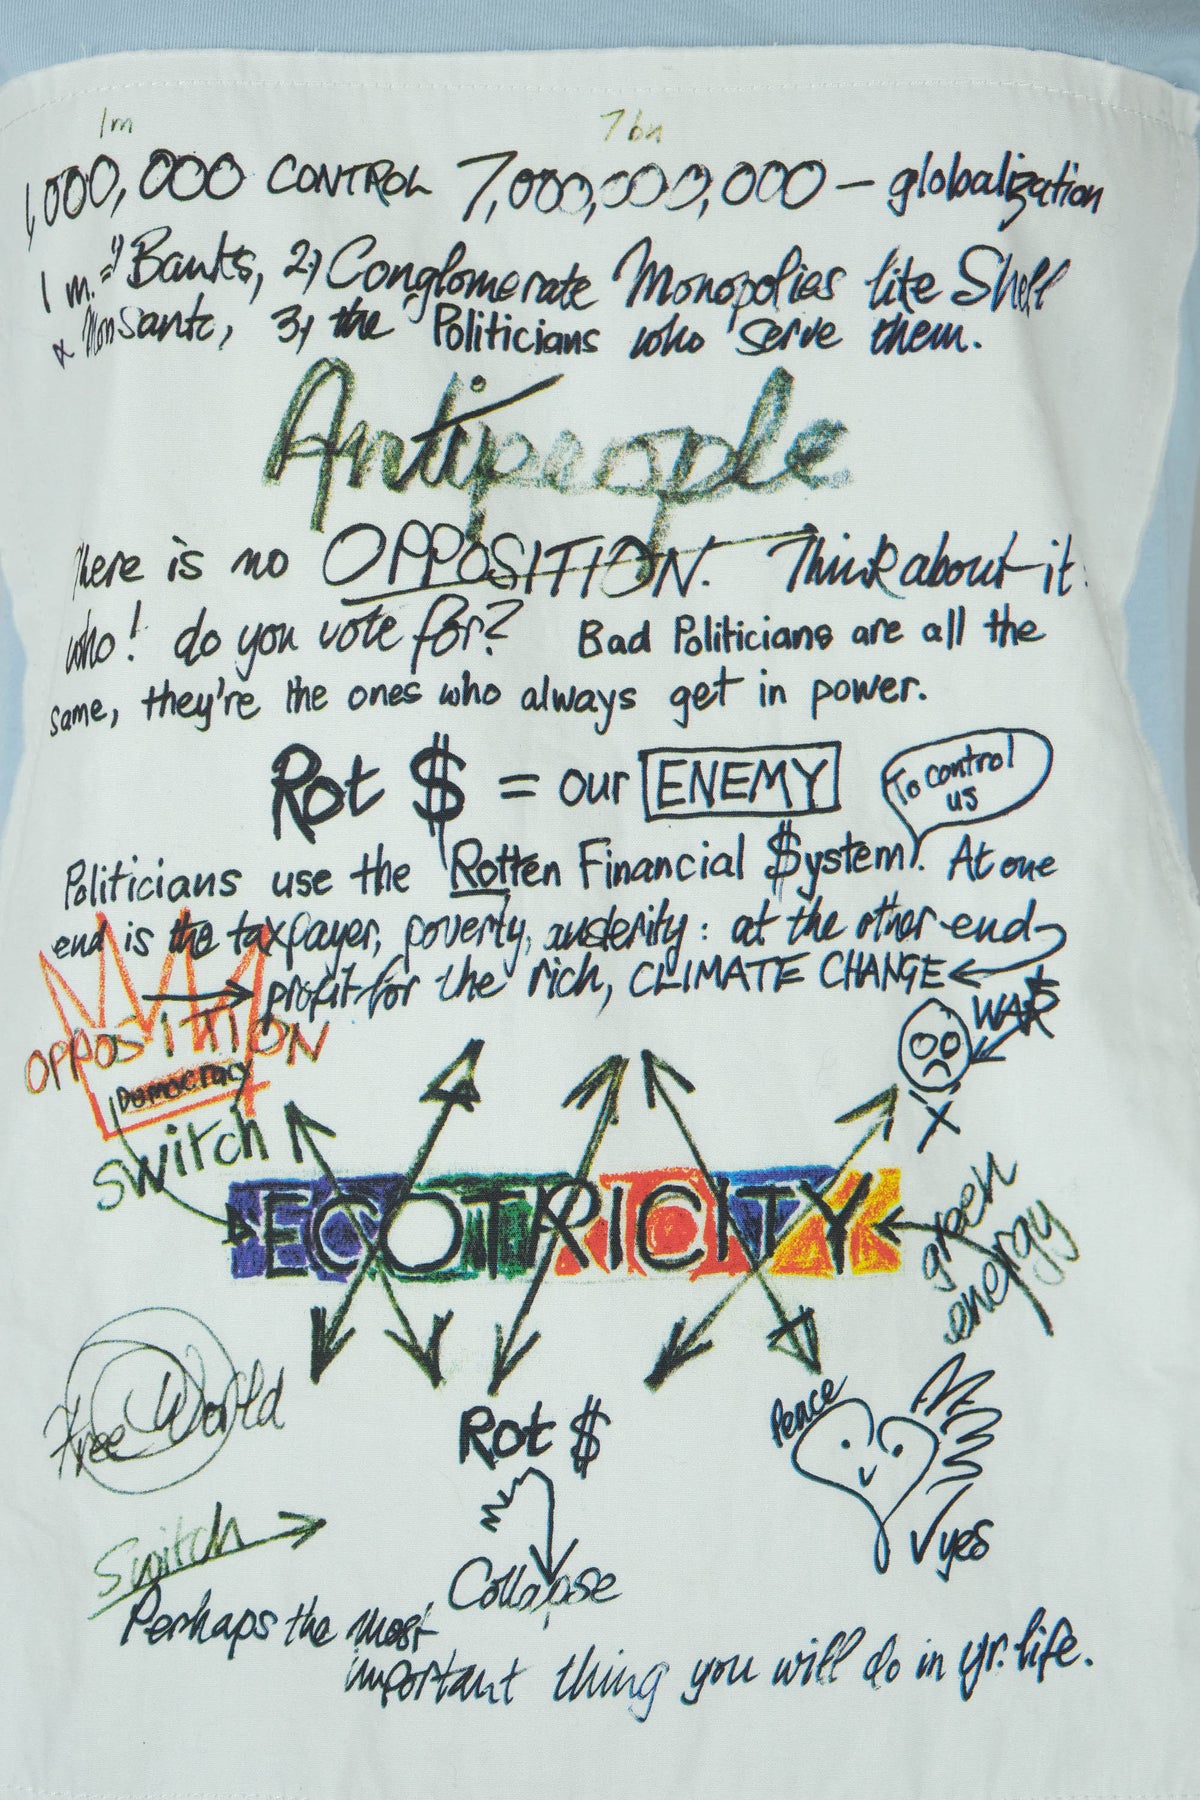 1m 7bn
1,000,000 CONTROL 7,000,000,000 – globalization
1 m. = 1) Banks, 2) Conglomerate Monopolies like Shell
& MonSanto, 3) the Politicians who serve them.
Antipeople
There is no OPPOSITION. Think about it:
who! do you vote for? Bad Politicians are all the
same, they're the ones who always get in power.
Rot $ = our ENEMY
To control
us
Politicians use the Rotten Financial $ystem. At one
end is the taxpayer, poverty, austerity: at the other end
profit for the rich, CLIMATE CHANGE
WAR
OPPOSITION
Dumocracy
switch
ECOTRICITY
green
energy
Free World
Rot $
Peace
yes
Switch
Collapse
Perhaps the most
important thing you will do in yr. life.